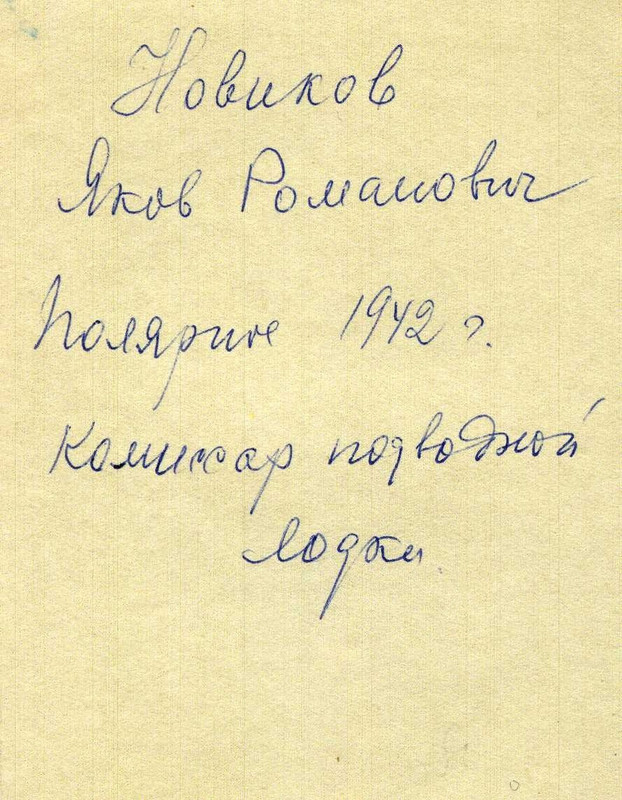 Новиков
Яков Романович
Полярное 1942 г.
Комиссар подводной
лодки